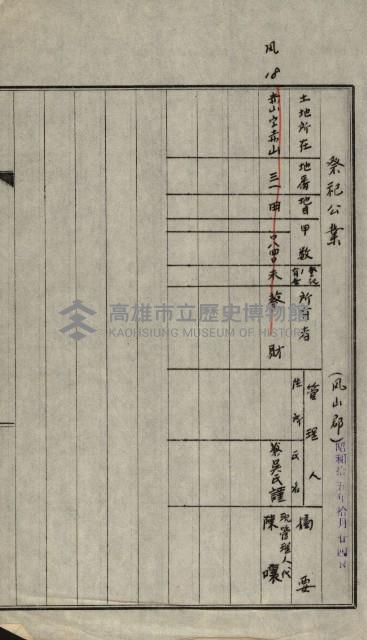 祭祀公業
(鳳山郡)
昭和拾五年拾月廿四日
土地所在
地番
地目
甲数
登記ノ有無
所有者
管理人
住所
氏名
摘要
鳳
18
赤山字赤山
三一
田
未
蔡
財
蔡吳氏謹
現管理人代
陳嚷
高雄市立歷史博物館
KAOHSIUNG MUSEUM OF HISTORY